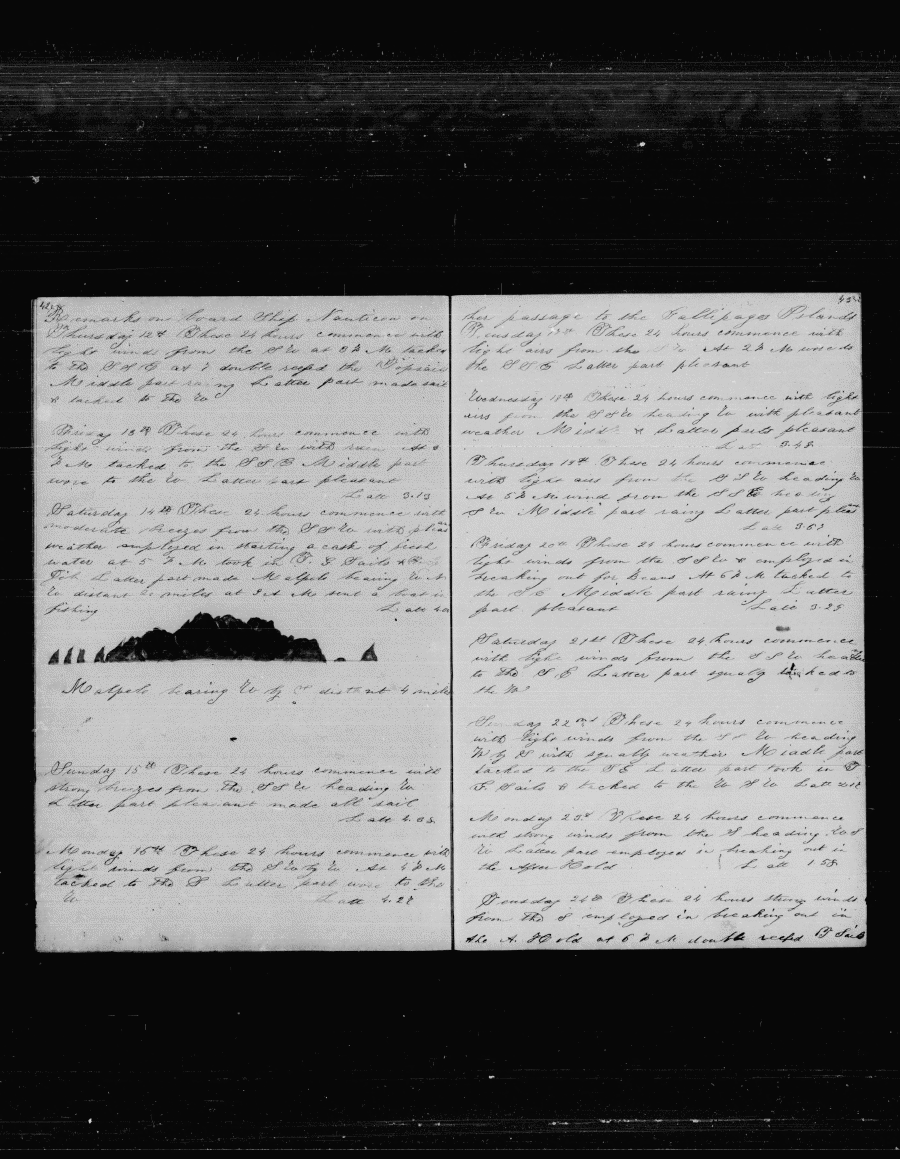 Remarks on board Ship Nauticon on
Thursday 12th These 24 hours commence with
light winds from the SW at 3 P M tacked
to the S S E at 7 double reefd the Topsails
Middle part rainy Latter part made sail
& tacked to the W
Friday 13th These 24 hours commence with
light winds from the S W with rain At
P M tacked to the S S E Middle part
wore to the W Latter part pleasant
Latt 3.13
Saturday 14th These 24 hours commence with
moderate breezes from the S S W with pleasant
weather employed in starting a cask of fresh
water at 5 P M took in T. G Sails &
Jib Latter part made Malpelo bearing W N
W distant miles at A M sent a boat in
fishing Latt 4.0
Malpelo bearing W by distant 4 miles
Sunday 15th These 24 hours commence with
strong breezes from the S S W heading W
Latter part pleasant made all sail
Latt 4.08
Monday 16th These 24 hours commence with
light winds from the S W by W At 4 P M
tacked to the S Latter part wore to the
W Latt 4.28
her passage to the Gallipagos Islands
Tuesday These 24 hours commence with
light airs from the At 2 P M wore to
the S S E Latter part pleasant
Wednesday 18th These 24 hours commence with light
airs from the S S W heading W with pleasant
weather Midd & Latter parts pleasant
Latt 3.48
Thursday 19th These 24 hours commence
with light airs from the S S W heading W
At 5 P M wind from the S S E heading
S W Middle part rainy Latter part pleas
Latt 3.53
Friday 20th These 24 hours commence with
light winds from the S S W & employed in
breaking out for Beans At 6 P M tacked to
the S E Middle part rainy Latter
part pleasant Latt 3.25
Saturday 21st These 24 hours commence
with light winds from the S S W heading
to the S E Latter part squaly tacked to
the W
Sunday 22nd These 24 hours commence
with light winds from the S S W heading
W by S with squaly weather Middle part
tacked to the S E Latter part took in T
G Sails & tacked to the W S W Latt
Monday 23d These 24 hours commence
with strong winds from the S heading W S
W Latter part employed in breaking out in
the After Hold Latt 1.58
Tuesday 24th These 24 hours strong winds
from the S employed in breaking out in
the A. Hold at 6 P M double reefd T Sails